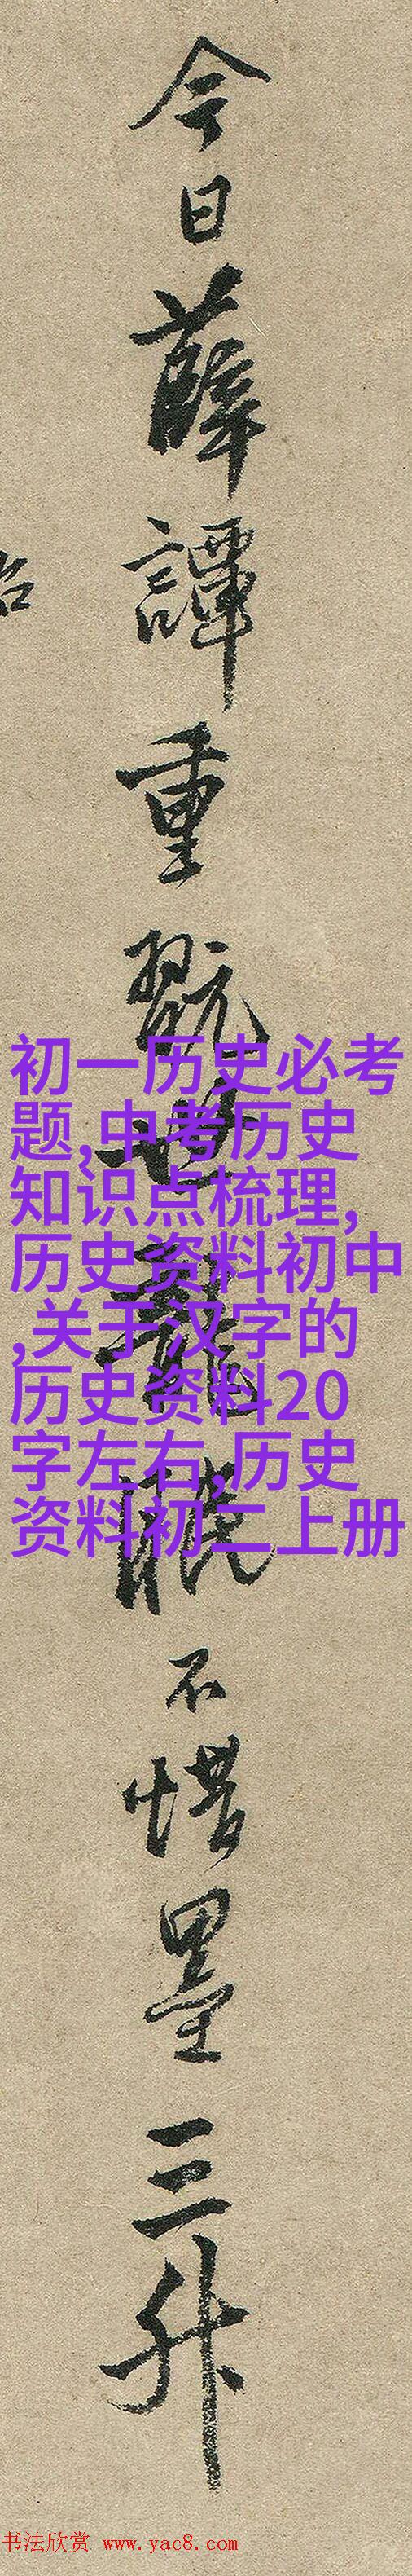 今日薛譚重翫世龍
不惜墨三升
初一历史必考
题,中考历史
知识点梳理,
历史资料初中
,关于汉字的
历史资料20
字左右,历史
资料初二上册
书法欣赏 www.yac8.com